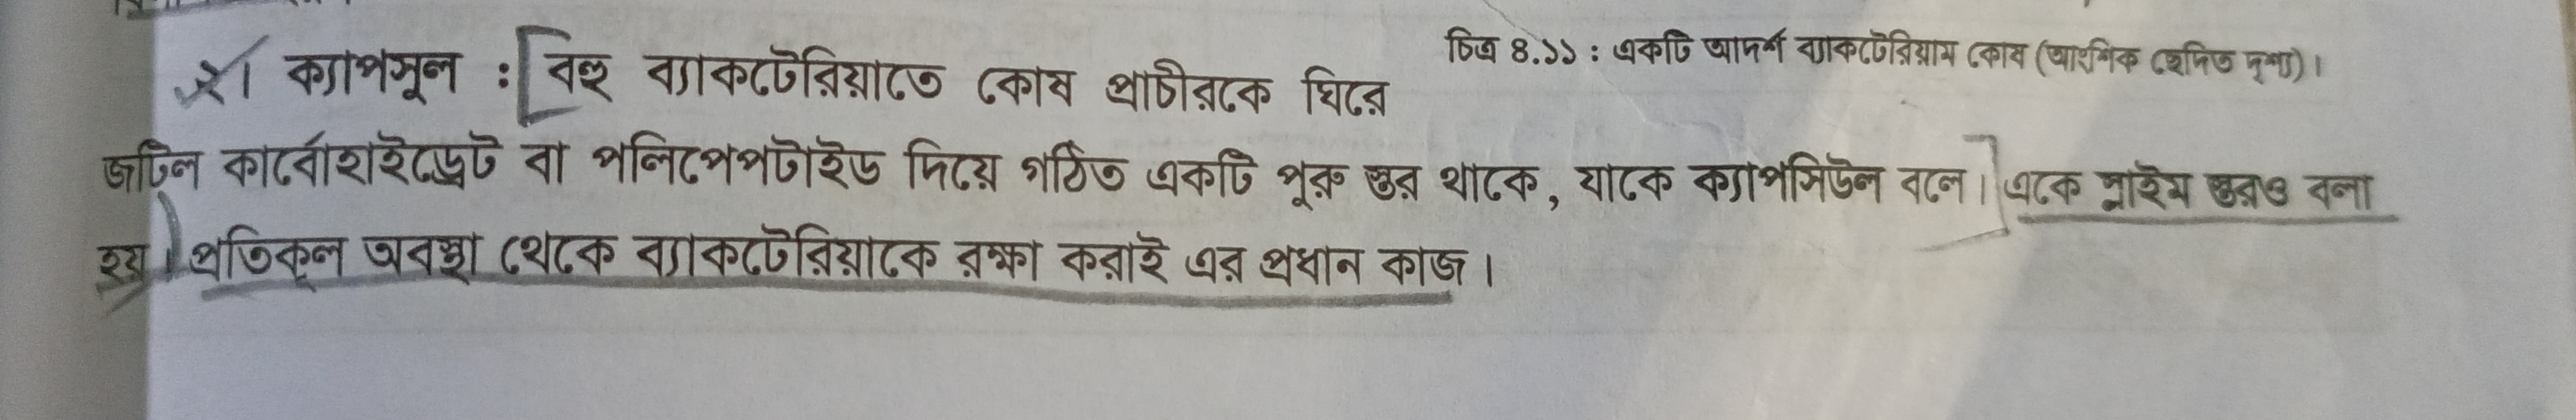 চিত্র ৪.১১ : একটি আদর্শ ব্যাকটেরিয়াম কোষ (আংশিক ছেদিত দৃশ্য)।
২। ক্যাপসূল : বহু ব্যাকটেরিয়াতে কোষ প্রাচীরকে ঘিরে
জটিল কার্বোহাইড্রেট বা পলিপেপটাইড দিয়ে গঠিত একটি পুরু স্তর থাকে, যাকে ক্যাপসিউল বলে। একে স্লাইম স্তরও বলা
হয়। প্রতিকূল অবস্থা থেকে ব্যাকটেরিয়াকে রক্ষা করাই এর প্রধান কাজ।